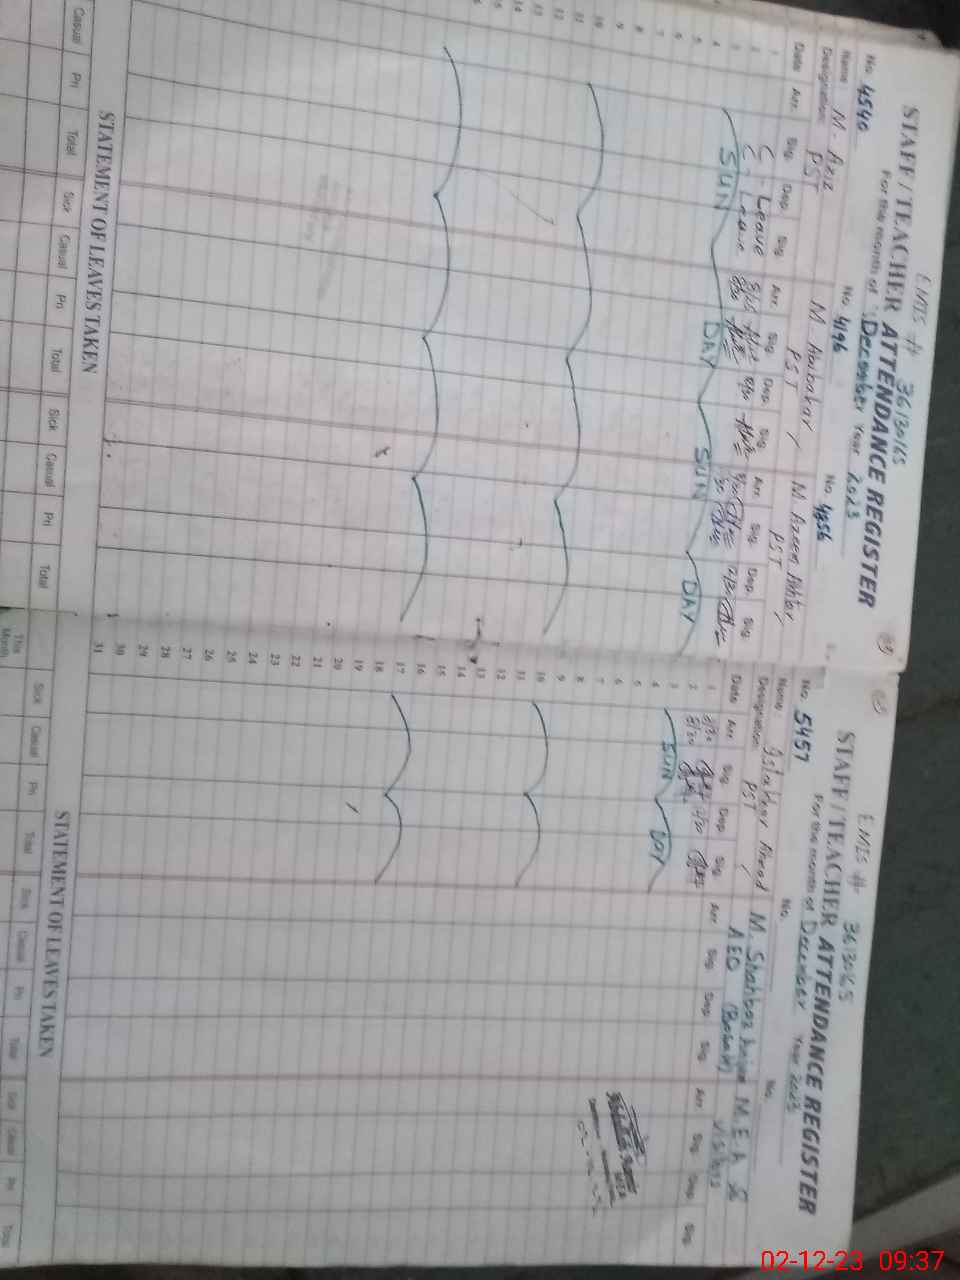 EMIS # 36130165
STAFF/TEACHER ATTENDANCE REGISTER
For the month of December Year 2023
No. 4540 No. 4196 No. 4856
Name: M. Aziz M. Abubakar M. Azeem Akhtar
Designation: PST PST PST
Date Arr. Sig. Dep. Sig. Arr. Sig. Dep. Sig. Arr. Sig. Dep. Sig.
1 C. Leave 8/15 8/00
2 C. Leave 8/30
3 SUN DAY SUN DAY
4
5
6
7
8
9
10
11
12
13
14
15
STATEMENT OF LEAVES TAKEN
Casual Pri Total Sick Casual Pri Total Sick Casual Pri Total
EMIS # 3613065
STAFF/TEACHER ATTENDANCE REGISTER
For the month of December Year 2023
No. 5457 No. No.
Name: Ahmad M. Shahbaz M.E.A &
Designation: PST AEO Visitors
Date Arr. Sig. Dep. Sig. Arr. Sig. Dep. Sig. Arr. Sig. Dep. Sig.
1 8/30
2 8/30
3 SUN DAY
4
5
6
7
8
9
10
11
12
13
14
15
16
17
18
19
20
21
22
23
24
25
26
27
28
29
30
31
STATEMENT OF LEAVES TAKEN
This Month Sick Casual Pri Total Sick Casual Pri Total Sick Casual Pri Total
02-12-23 09:37